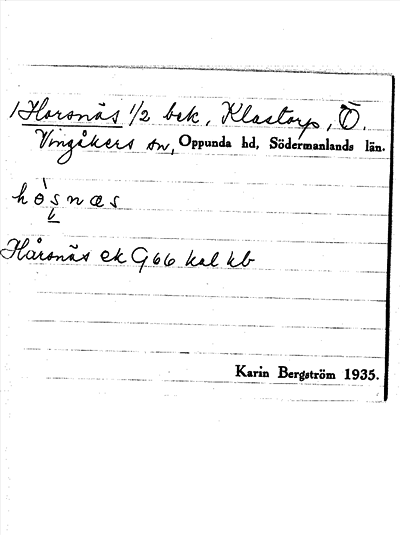 1 Horsnäs 1/2 bek, Klastorp, Ö.
Vingåkers sn, Oppunda hd, Södermanlands län.
Hårsnäs ek G66 kal kb
Karin Bergström 1935.